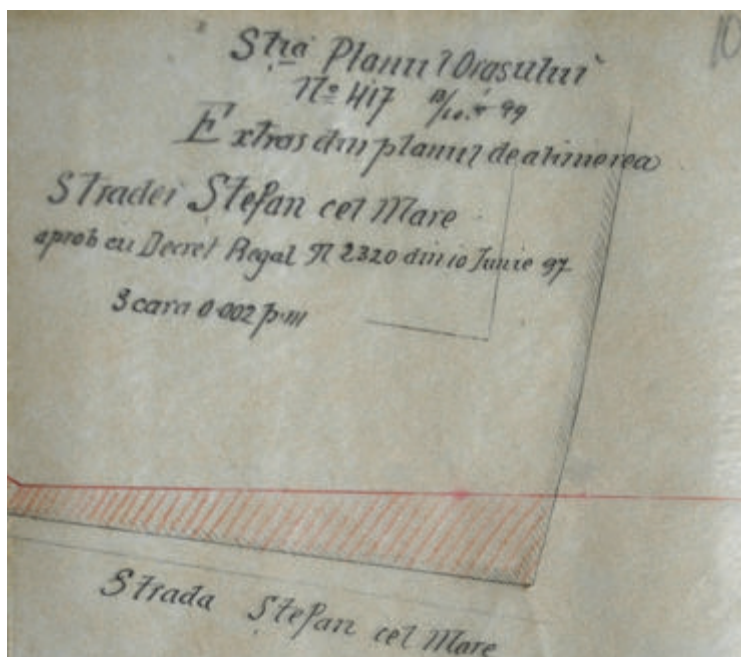 10
Stia Planul Orasului
No 417 99
Extras din planul de alinierea
Stradei Stefan cel Mare
aprob cu Decret Regal N 2320 din 10 Junie 97
Scara 0.002 p.m
Strada Stefan cel Mare